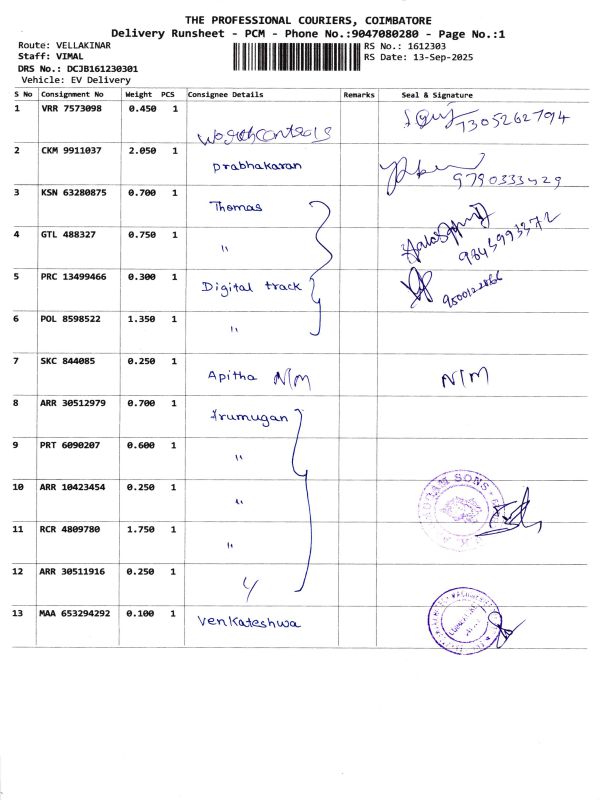 THE PROFESSIONAL COURIERS, COIMBATORE
Delivery Runsheet - PCM - Phone No.:9047080280 - Page No.:1
Route: VELLAKINAR RS No.: 1612303
Staff: VIMAL RS Date: 13-Sep-2025
DRS No.: DCJB161230301
Vehicle: EV Delivery
S No Consignment No Weight PCS Consignee Details Remarks Seal & Signature
1 VRR 7573098 0.450 1 7305262794
2 CKM 9911037 2.050 1 prabhakaran 9790333429
3 KSN 63280875 0.700 1 Thomas
4 GTL 488327 0.750 1 " 9843993372
5 PRC 13499466 0.300 1 Digital track
6 POL 8598522 1.350 1 "
7 SKC 844085 0.250 1 Apitha N/M N/M
8 ARR 30512979 0.700 1 Arumugan
9 PRT 6090207 0.600 1 "
10 ARR 10423454 0.250 1 "
11 RCR 4809780 1.750 1 " SONS
12 ARR 30511916 0.250 1 "
13 MAA 653294292 0.100 1 Venkateshwa